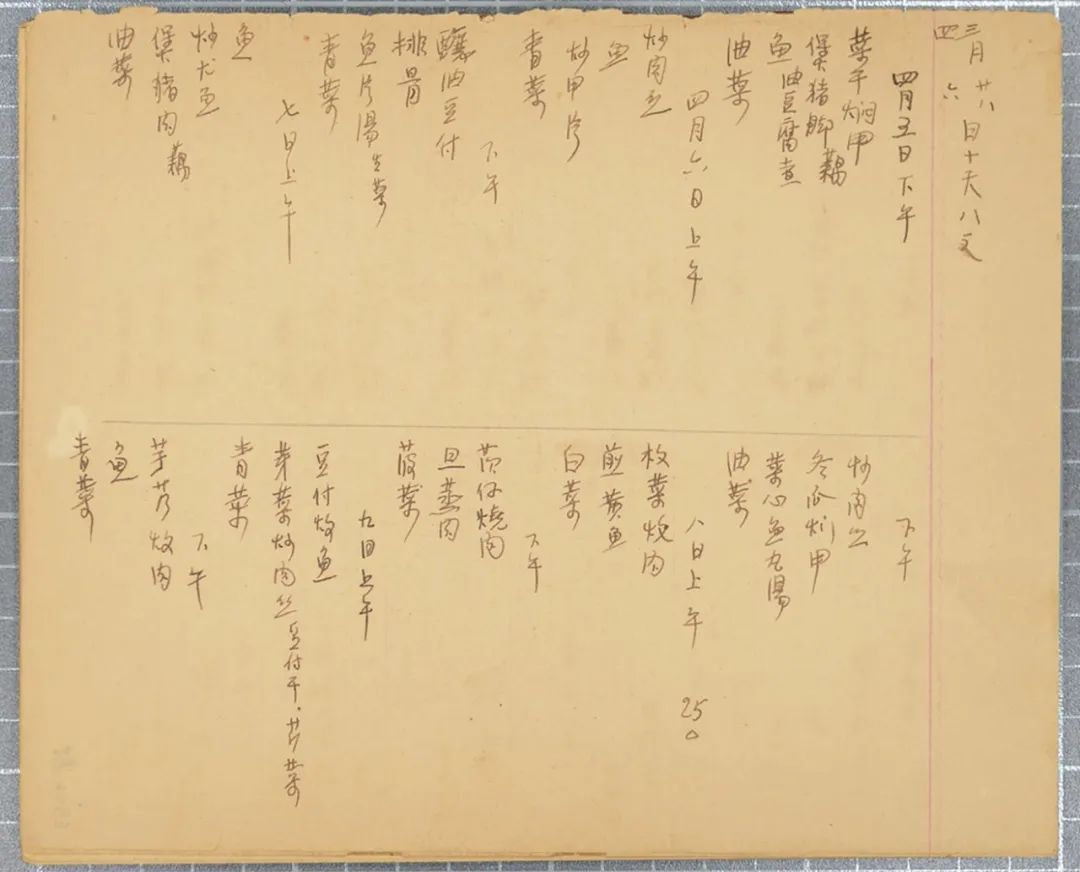 三月廿八日十天八文
四 六
四月五日下午
菜干焖甲
煲猪脚藕
鱼油豆腐煮
油菜
四月六日上午
炒肉
鱼
炒甲片
青菜
下午
酿油豆付
排骨
鱼片湯生菜
青菜
七日上午
鱼
炒尤鱼
煲猪肉藕
油菜
下午
炒肉丝
冬瓜炆甲
菜心鱼丸湯
油菜
八日上午 250
枚菜烧肉
煎黄鱼
白菜
下午
茨仔燒肉
旦蒸肉
菠菜
九日上午
豆付炆鱼
芽菜炒肉丝豆付干.芹菜
青菜
下午
芋艿炆肉
鱼
青菜